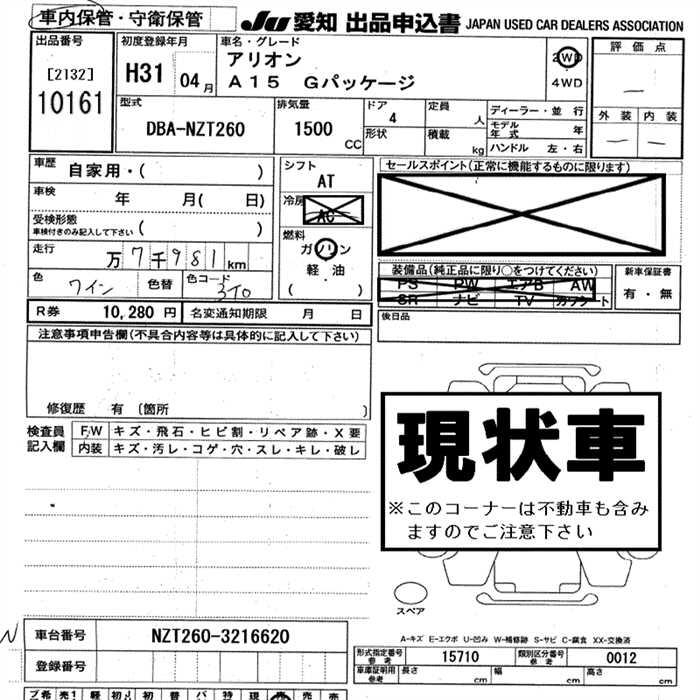 車内保管・守衛保管
JU 愛知 出品申込書 JAPAN USED CAR DEALERS ASSOCIATION
出品番号
[2132]
10161
初度登録年月
H31 04月
車名・グレード
アリオン
A15 Gパッケージ
2WD
・
4WD
評価点
—
外装 内装
— —
型式
DBA-NZT260
排気量
1500
CC
ドア
4
形状
定員
人
積載
kg
ディーラー・並行
モデル年式 年
ハンドル 左・右
車歴 自家用・( )
車検 年 月( 日)
受検形態
車検付きのみ記入して下さい ( )
走行 万 7千981km
色 ワイン 色替 色コード 3T0
シフト
AT
冷房
AC
燃料
ガソリン
・
軽油
( )
セールスポイント(正常に機能するものに限ります)
装備品(純正品に限り○をつけてください)
PS PW エアB AW
SR ナビ TV カワシート
新車保証書
有・無
R券 10,280 円 名変通知期限 月 日
後日品
注意事項申告欄(不具合内容等は具体的に記入して下さい)
修復歴 有 〔箇所 〕
検査員記入欄
F/W キズ・飛石・ヒビ割・リペア跡・X要
内装 キズ・汚レ・コゲ・穴・スレ・キレ・破レ
現状車
※このコーナーは不動車も含み
ますのでご注意下さい
スペア
A-キズ E-エクボ U-凹み W-補修跡 S-サビ C-腐食 XX-交換済
N
車台番号 NZT260-3216620
登録番号
形式指定番号 参考 15710 類別区分番号 参考 0012
車庫証明用 参考 長さ cm 幅 cm 高さ cm